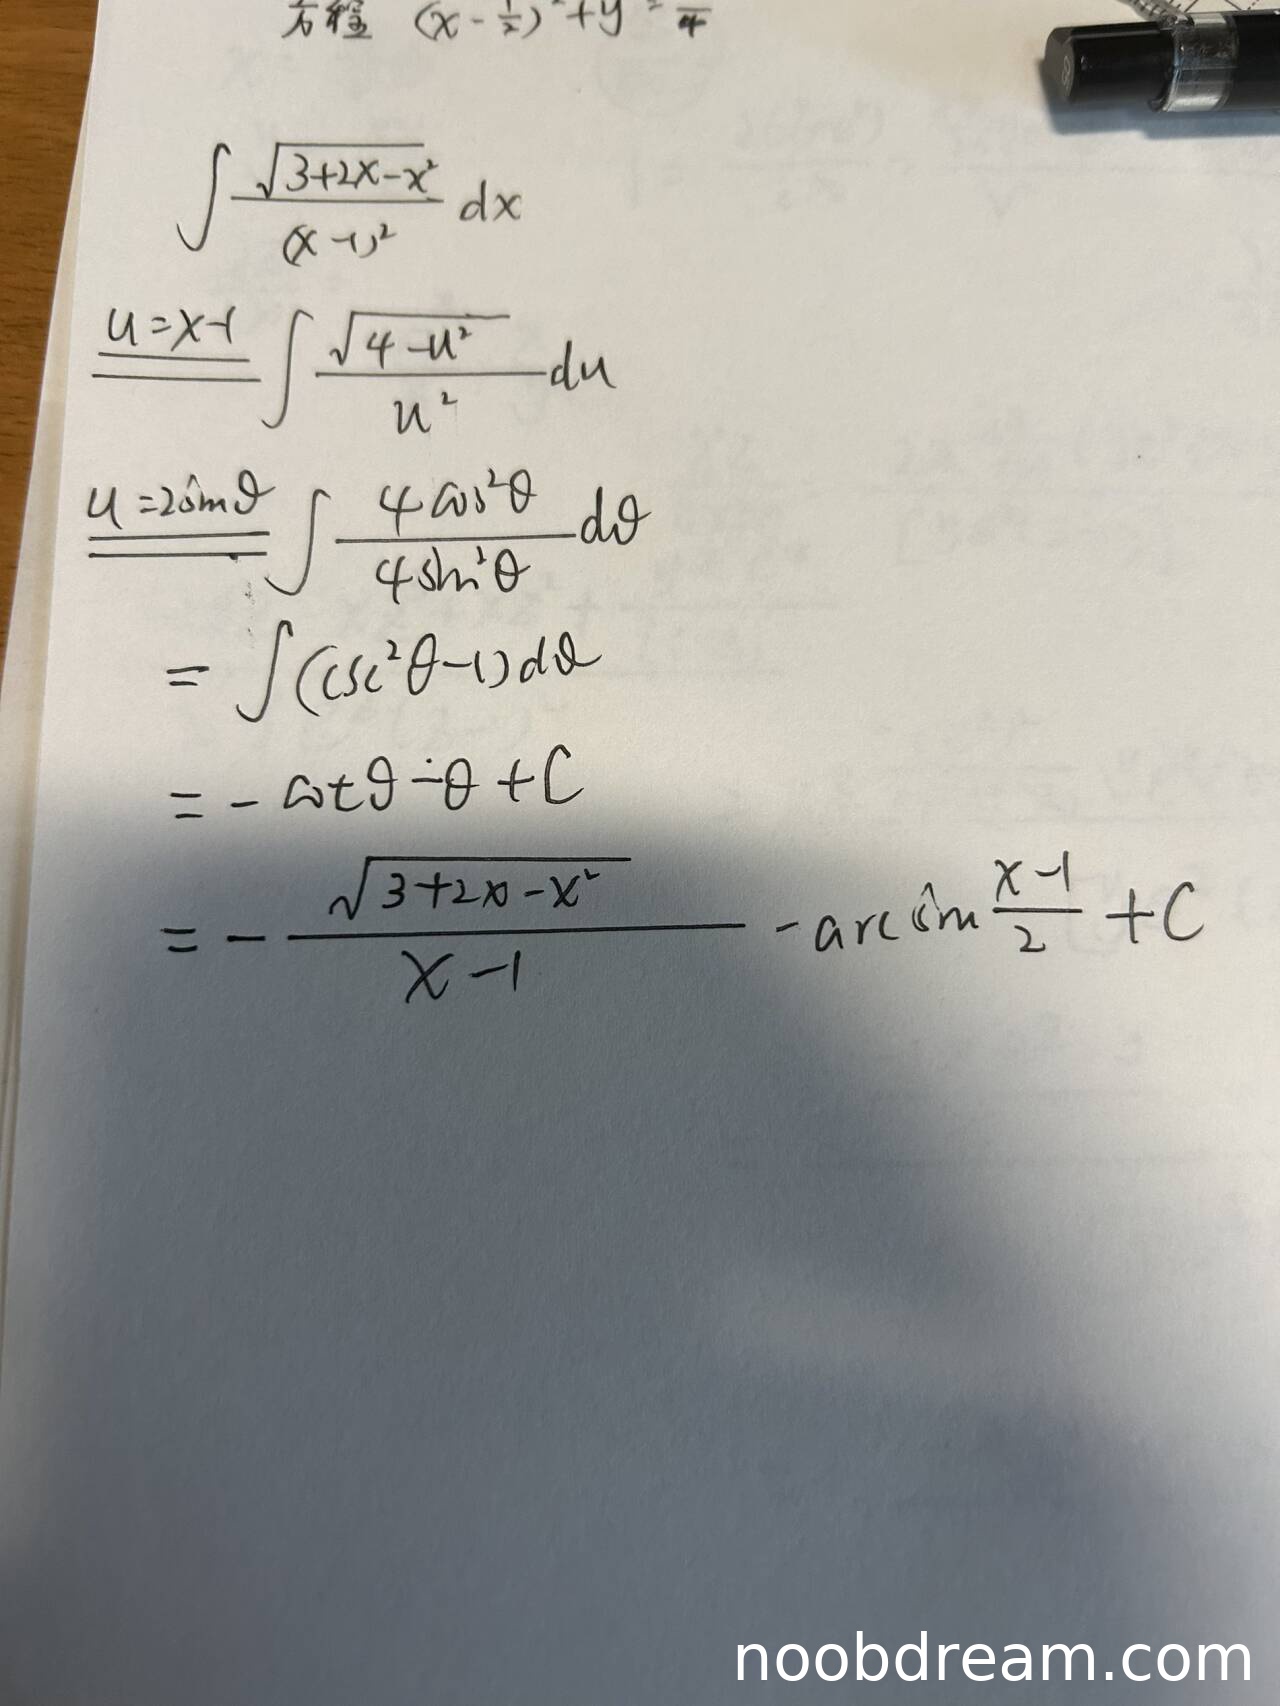 方程 (x - 1/2)² + y² = 1/4
∫ √(3+2x-x²) / (x-1)² dx
u=x-1 ∫ √(4-u²) / u² du
u=2sinθ ∫ 4cos²θ / 4sin²θ dθ
= ∫(csc²θ-1)dθ
= - cotθ - θ + C
= - √(3+2x-x²) / (x-1) - arcsin (x-1)/2 + C
noobdream.com